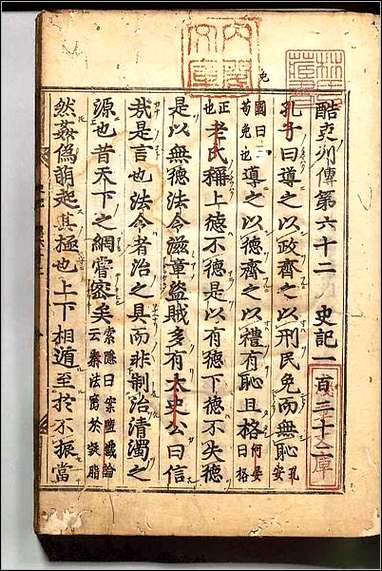 内閣文庫
林氏藏書
酷吏列傳第六十二 史記一百二十二
孔子曰導之以政齊之以刑民免而無恥孔安
國曰苟免也導之以德齊之以禮有恥且格何晏曰格
正也老氏稱上德不德是以有德下德不失德
是以無德法令滋章盜賊多有太史公曰信
哉是言也法令者治之具而非制治清濁之
源也昔天下之網嘗密矣索隱曰案鹽鐵論云秦法密於凝脂
然姦偽萌起其極也上下相遁至於不振當